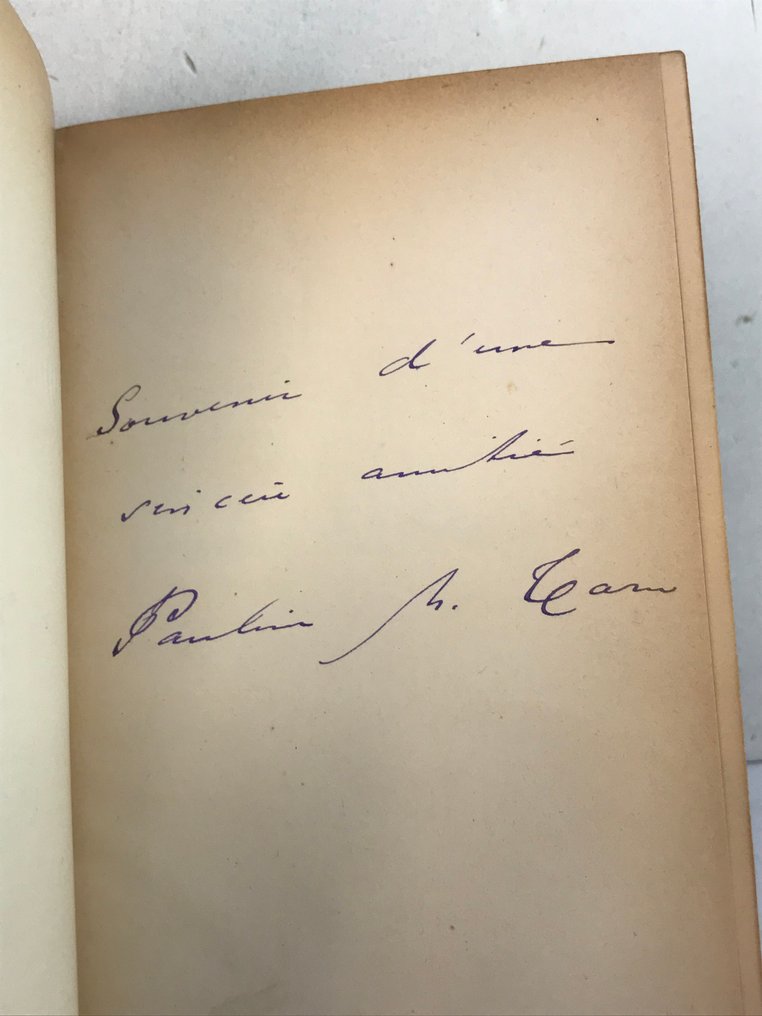 Souvenir d'une
sincère amitié
Pauline M. Tarn